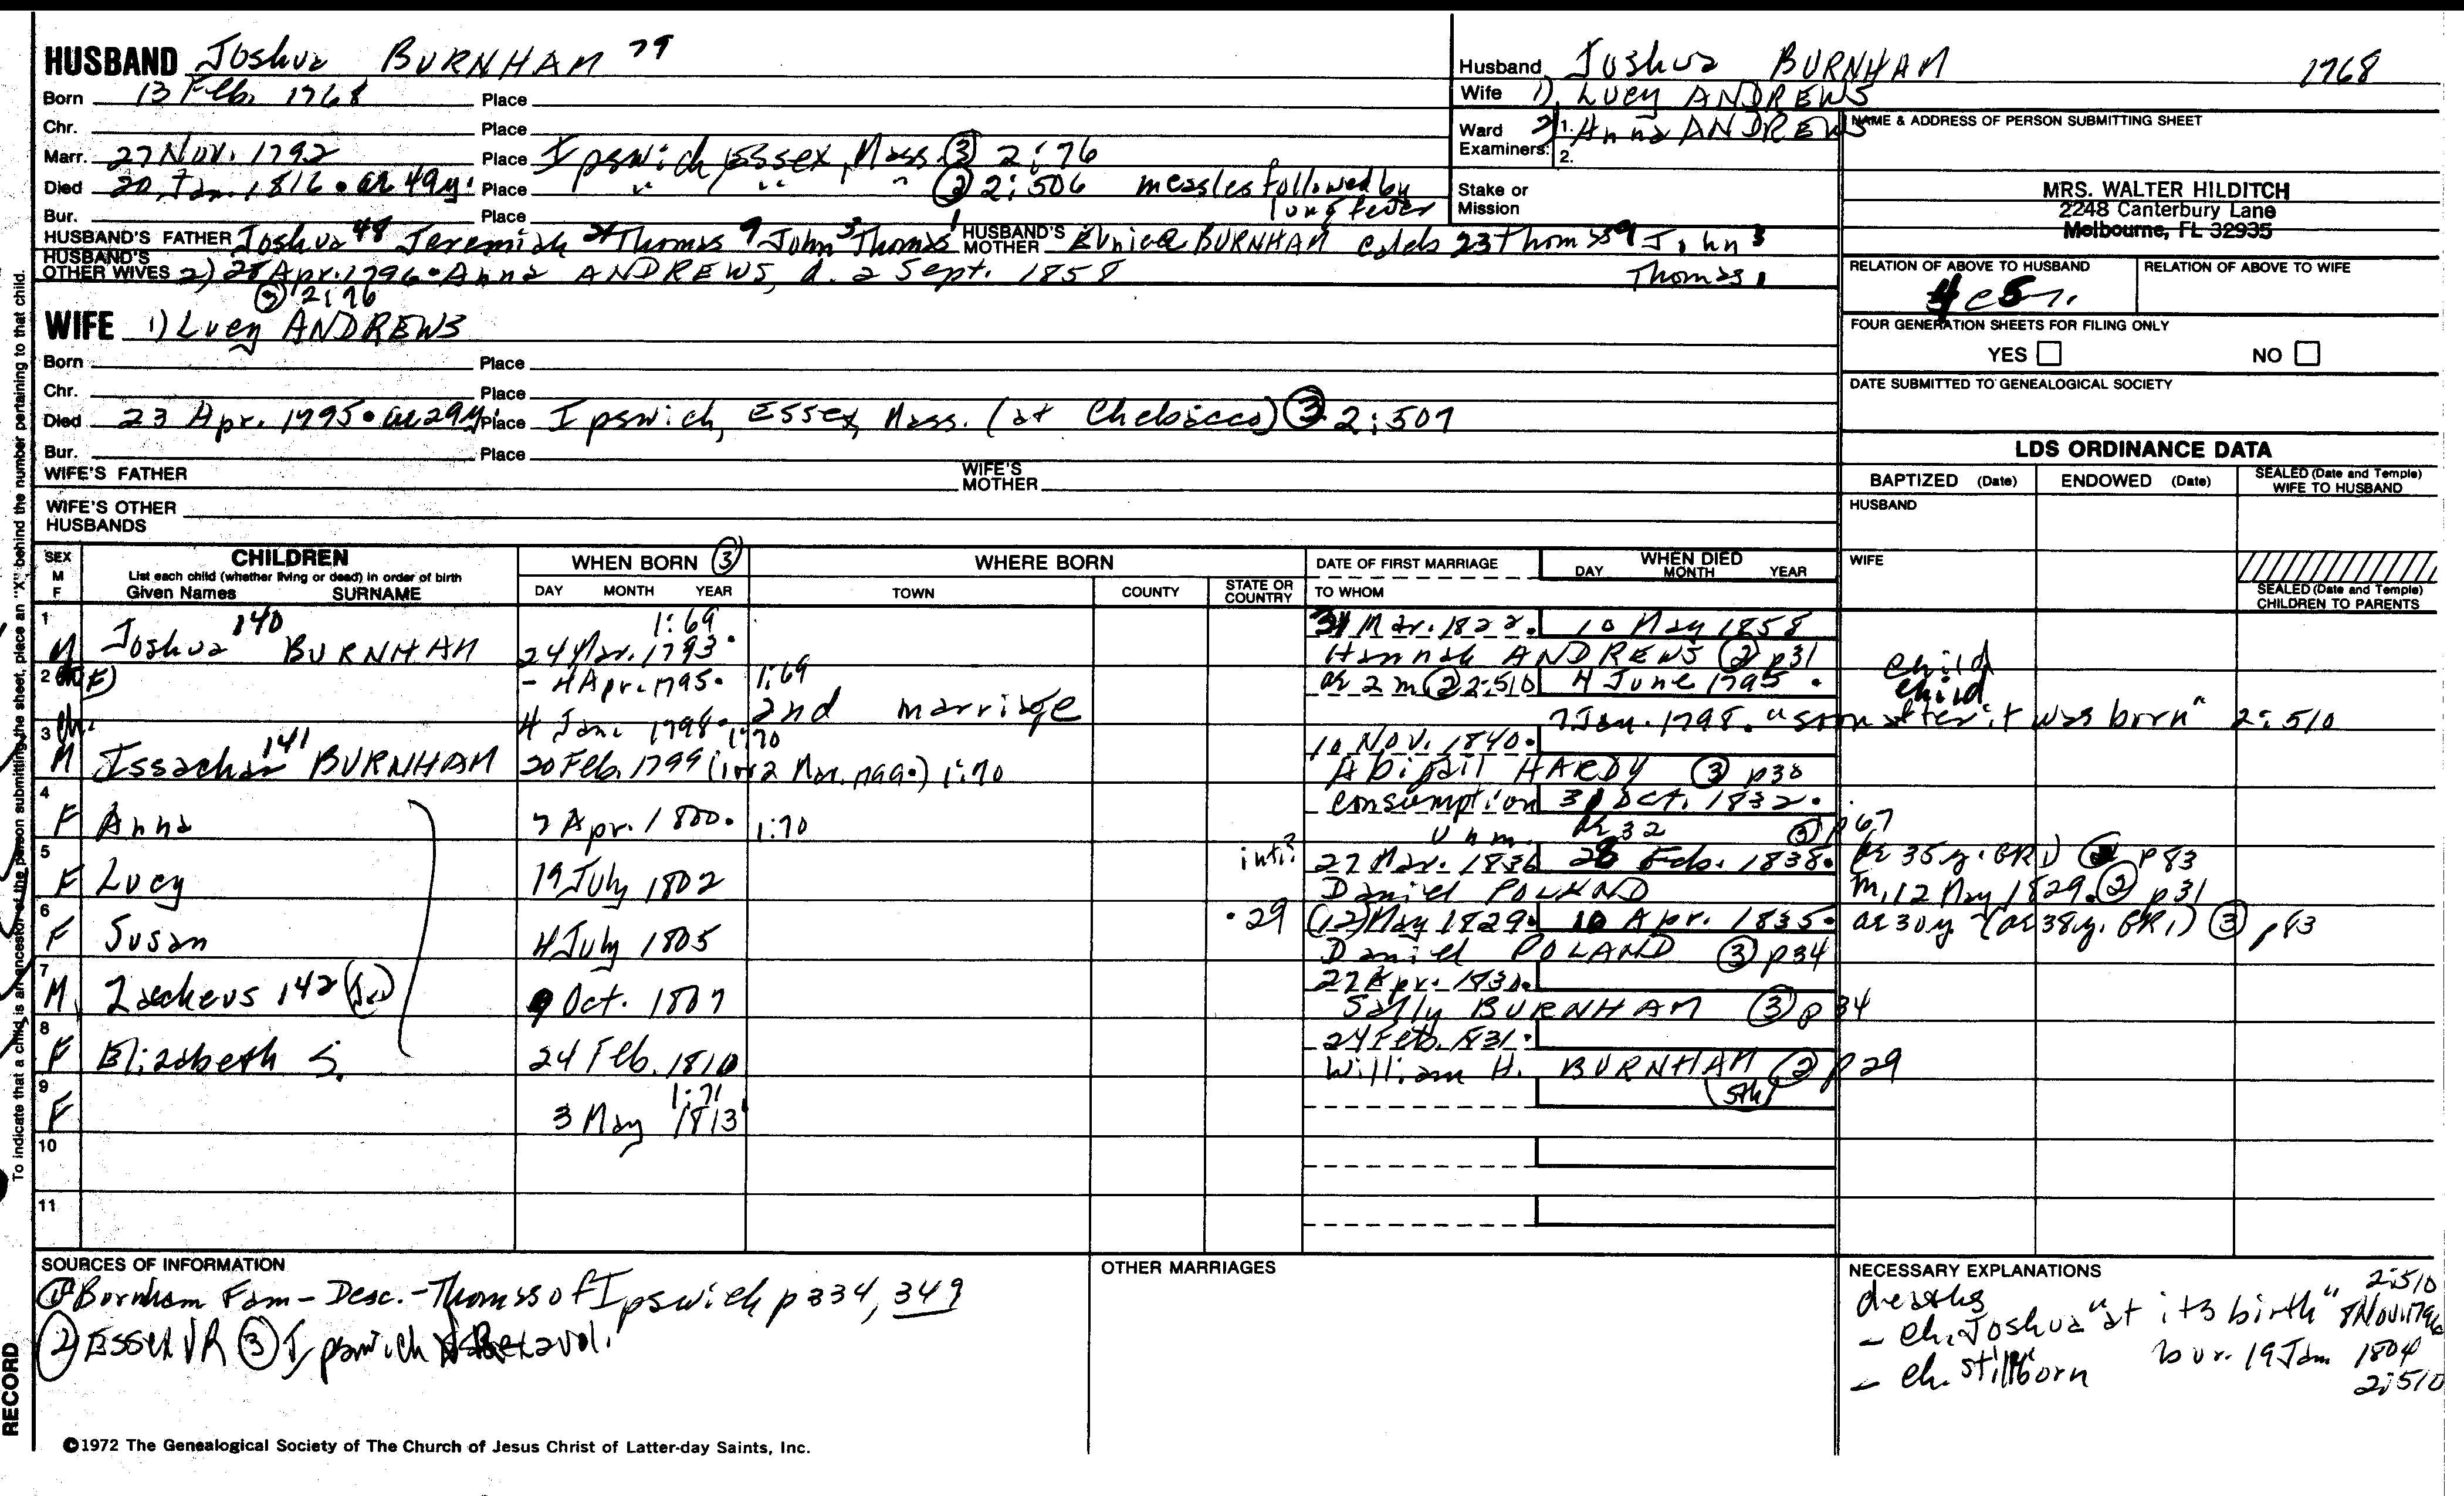 HUSBAND Joshua BURNHAM 79
Born 13 Feb. 1768 Place
Chr. Place
Marr. 27 Nov. 1792 Place Ipswich, Essex, Mass. (3) 2:76
Died 20 Jan. 1816. ae 49y. Place " " " (2) 2:506 measles followed by
lung fever
Bur. Place
HUSBAND'S FATHER Joshua 48 Jeremiah 21 Thomas 9 John 3 Thomas 1 HUSBAND'S MOTHER Eunice BURNHAM Caleb 23 Thomas 9 John 3
Thomas 1
HUSBAND'S OTHER WIVES 2) 28 Apr. 1796. Anna ANDREWS, d. 2 Sept. 1858
(3) 2:76
WIFE 1) Lucy ANDREWS
Born Place
Chr. Place
Died 23 Apr. 1795. ae 29y. Place Ipswich, Essex, Mass. (at Chebacco) (3) 2:507
Bur. Place
WIFE'S FATHER WIFE'S MOTHER
WIFE'S OTHER HUSBANDS
Husband Joshua BURNHAM 1768
Wife 1) Lucy ANDREWS
2) Anna ANDREWS
Ward Examiners: 1.
2.
Stake or Mission
NAME & ADDRESS OF PERSON SUBMITTING SHEET
MRS. WALTER HILDITCH
2248 Canterbury Lane
Melbourne, FL 32935
RELATION OF ABOVE TO HUSBAND RELATION OF ABOVE TO WIFE
FOUR GENERATION SHEETS FOR FILING ONLY
YES NO
DATE SUBMITTED TO GENEALOGICAL SOCIETY
LDS ORDINANCE DATA
BAPTIZED (Date) ENDOWED (Date) SEALED (Date and Temple) WIFE TO HUSBAND
HUSBAND
WIFE
SEALED (Date and Temple) CHILDREN TO PARENTS
SEX M F CHILDREN WHEN BORN (3) WHERE BORN DATE OF FIRST MARRIAGE WHEN DIED
List each child (whether living or dead) in order of birth
Given Names SURNAME DAY MONTH YEAR TOWN COUNTY STATE OR COUNTRY TO WHOM DAY MONTH YEAR
1 1:69 Mar. 1822. 10 May 1858
M Joshua 140 BURNHAM 24 Mar. 1793. Hannah ANDREWS (2) p31 child
2 (F) - 4 Apr. 1795. 1:69 ae 2 m (2) 2:510 4 June 1795. child
4 Jan. 1798. 2nd marriage 7 Jan. 1798. "soon after it was born" 2:510
3 1:70 10 Nov. 1840.
M Issachar 141 BURNHAM 20 Feb. 1799 (1:70 2 Mar. 1799.) 1:70 Abigail HARDY (3) p38
4 consumption 31 Oct. 1832.
F Anna 7 Apr. 1800. 1:70 unm. ae 32 (3) p67
5 int:? 27 Mar. 1836 28 Feb. 1838. ae 35y. GR1 p83
F Lucy 19 July 1802 Daniel POLAND m. 12 May 1829. (2) p31
6 .29 (12) May 1829. 10 Apr. 1835. ae 30y (ae 38y. GR1) (3) p83
F Susan 4 July 1805 Daniel POLAND (3) p34
7 27 Apr. 1830.
M Zacheus 142 9 Oct. 1807 Sally BURNHAM (3) p34
8 24 Feb. 1831.
F Elizabeth S. 24 Feb. 1810 William H. BURNHAM (2) p29
(5th)
9 1:71
F 3 May 1813
10
11
SOURCES OF INFORMATION
(1) Burnham Fam - Desc. - Thomas of Ipswich p 334, 349
(2) Essex VR (3) Ipswich 2 vol.
OTHER MARRIAGES
NECESSARY EXPLANATIONS
deaths 2:510
- ch. Joshua "at its birth" 8 Nov. 1796
- ch. stillborn bur. 19 Jan 1804
2:510
To indicate that a child is an ancestor of the person submitting the sheet, place an "X" behind the number pertaining to that child.
RECORD
©1972 The Genealogical Society of The Church of Jesus Christ of Latter-day Saints, Inc.